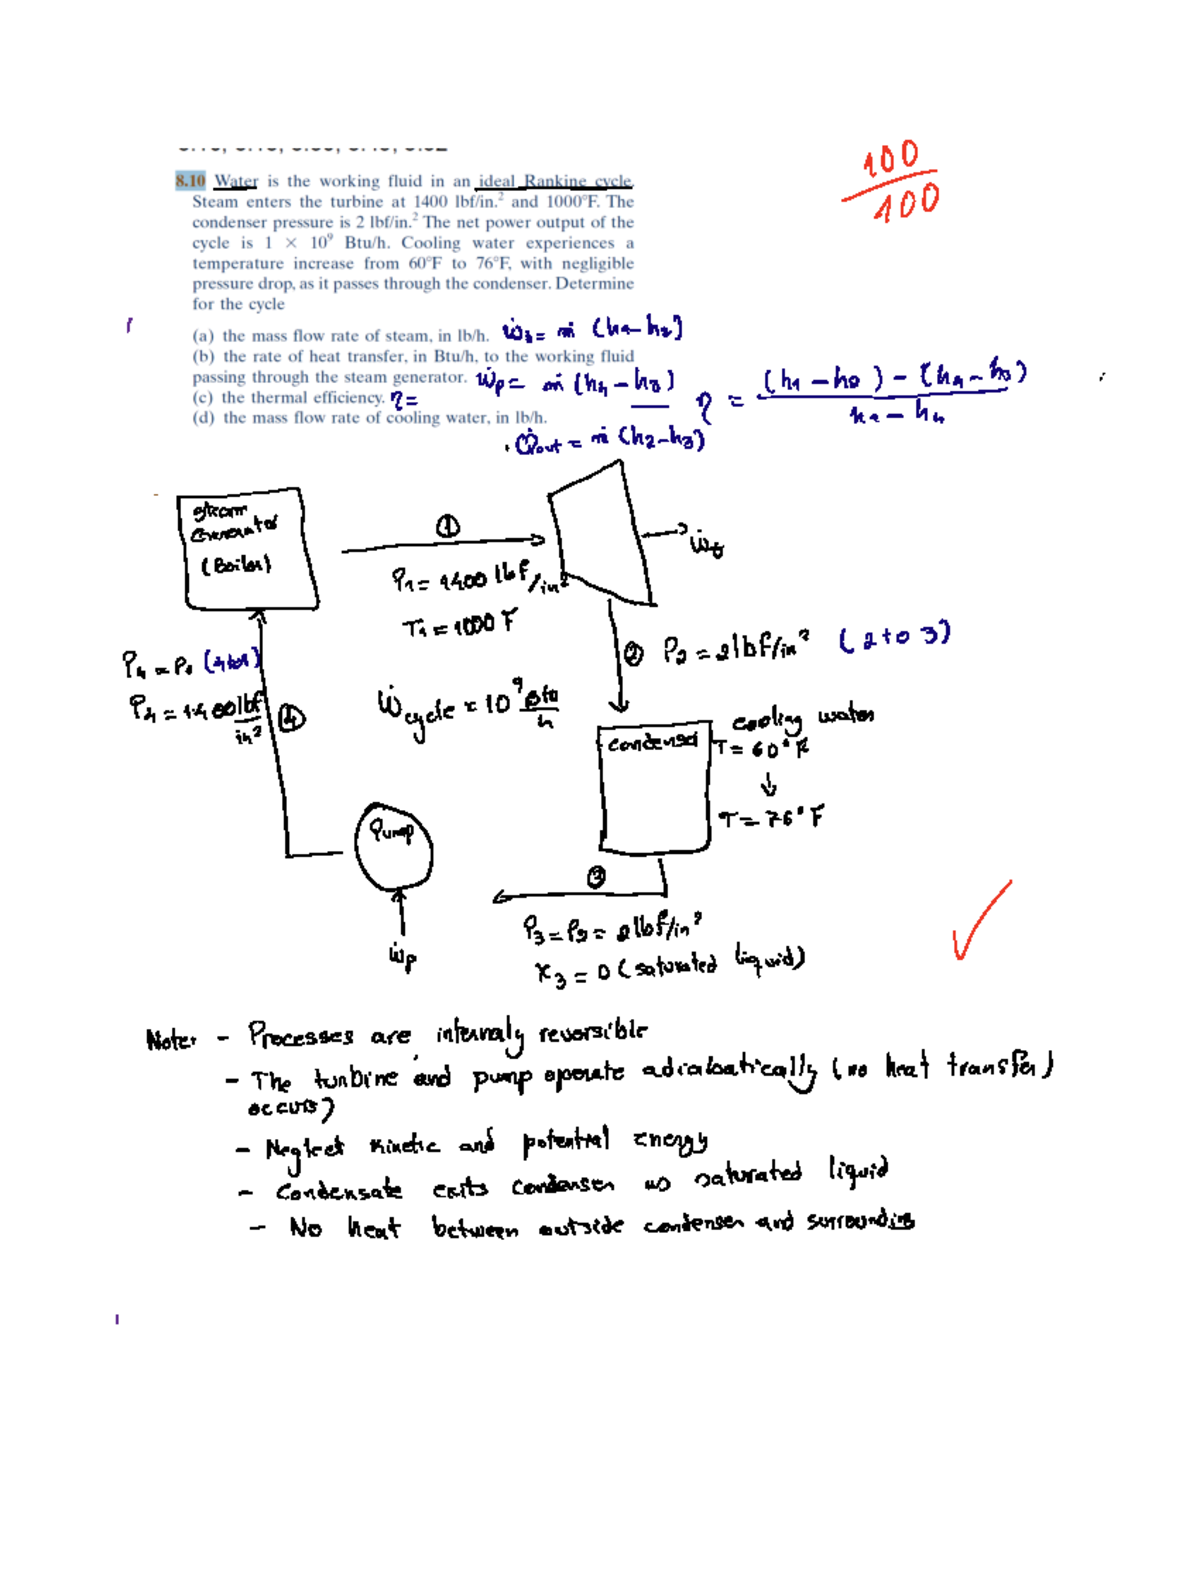 100
100
8.10 Water is the working fluid in an ideal Rankine cycle.
Steam enters the turbine at 1400 lbf/in.² and 1000°F. The
condenser pressure is 2 lbf/in.² The net power output of the
cycle is 1 × 10⁹ Btu/h. Cooling water experiences a
temperature increase from 60°F to 76°F, with negligible
pressure drop, as it passes through the condenser. Determine
for the cycle
(a) the mass flow rate of steam, in lb/h. Ẇt = ṁ (h1-h2)
(b) the rate of heat transfer, in Btu/h, to the working fluid
passing through the steam generator. Ẇp = ṁ (h4 - h3)
(c) the thermal efficiency. η =
(d) the mass flow rate of cooling water, in lb/h.
η = (h1 - h2) - (h4 - h3)
h1 - h4
Q̇out = ṁ (h2-h3)
steam
Generator
(Boiler)
①
P1 = 1400 lbf/in²
T1 = 1000 F
Ẇt
② P2 = 2lbf/in² (2 to 3)
P4 = P1 (4 to 1)
P4 = 1400lbf/in²
④
Ẇcycle = 10⁹ Btu/h
cooling water
condenser T = 60°F
↓
T = 76°F
Pump
Ẇp
③
P3 = P2 = 2lbf/in²
x3 = 0 (saturated liquid)
Note: - Processes are internaly reversible
- The turbine and pump operate adiabatically (no heat transfer)
occurs)
- Neglect Kinetic and potential Energy
- Condensate exits condenser as saturated liquid
- No heat between outside condenser and surroundis